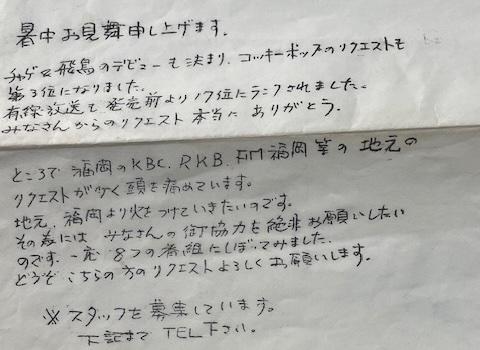 暑中お見舞申し上げます。
チャゲ&飛鳥のデビューも決まり、コッキーポップのリクエストも
第3位になりました。
有線放送も発売前より17位にランクされました。
みなさんからのリクエスト本当にありがとう。
ところで福岡のKBC、RKB、FM福岡等の地元の
リクエストが少く頭を痛めています。
地元、福岡より火をつけていきたいのです。
その為には、みなさんの御協力を絶非お願いしたい
のです。一応8つの番組にしぼってみました。
どうぞこちらの方のリクエストよろしくお願いします。
※スタッフを募集しています。
下記まで TEL下さい。